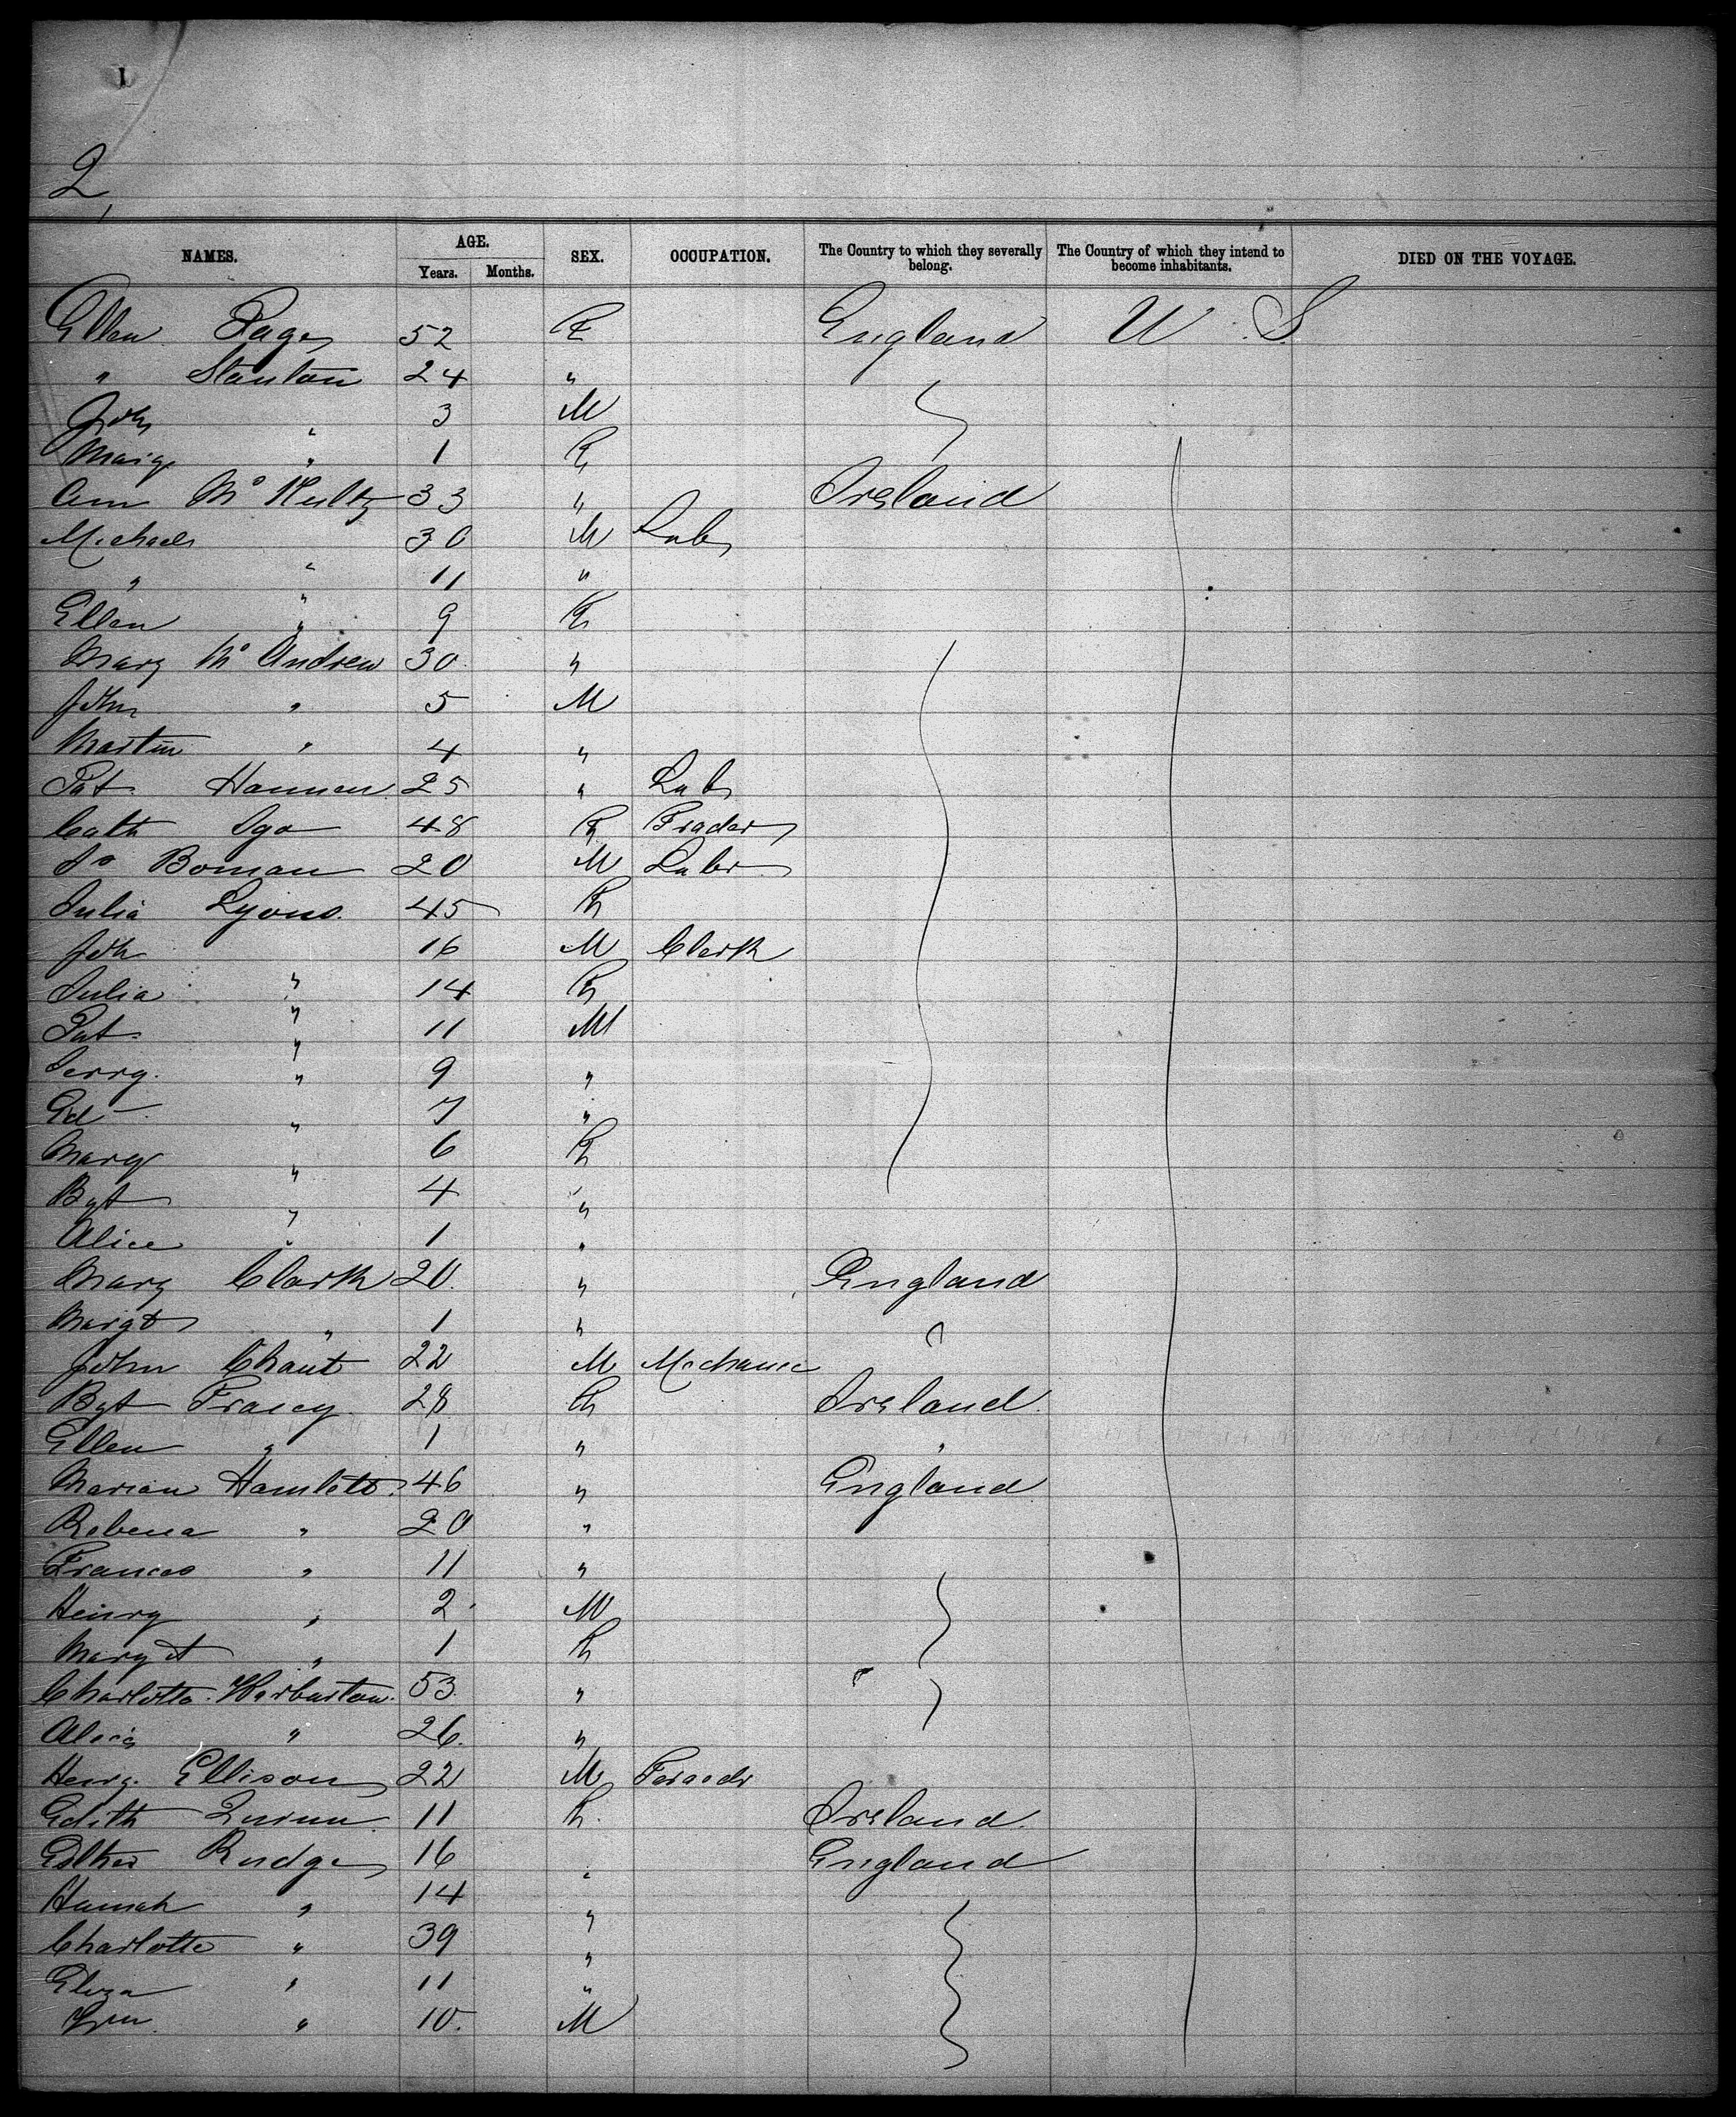 1
2,
NAMES. AGE. SEX. OCCUPATION. The Country to which they severally belong. The Country of which they intend to become inhabitants. DIED ON THE VOYAGE.
Years. Months.
Ellen Page 52 F England U.S.
" Stanton 24 "
Joh " 3 M
" 1 F
Ann 33 " Ireland
Michael 30 M Lab
" " 11 "
Ellen " 9 F
Mary Mc Andrew 30 "
John " 5 M
Martin " 4 "
Pat Hannan 25 " Lab
Cath Igo 48 F Trader
Jo Boman 20 M Labr
Julia Lyons 45 F
Joh 16 M Clerk
Julia " 14 F
Pat " 11 M
Jerry " 9 "
Ed " 7 "
Mary " 6 F
Bgt " 4 "
Alice " 1 "
Mary Clark 20 " England
Margt " 1 " "
John Chant 22 M Mechanic
Bgt Tracey 28 F Ireland
Ellen " 1 " "
Marian Hamlett 46 " England
Robena " 20 "
Frances " 11 "
Henry " 2 M
Margt " 1 F
Charlotte Warburton 53 " "
Alice " 26 "
Henry Ellison 22 M
Edith Quinn 11 F Ireland
Esther Rudge 16 " England
Hannah " 14 "
Charlotte " 39 "
Eliza " 11 "
Wm " 10 M